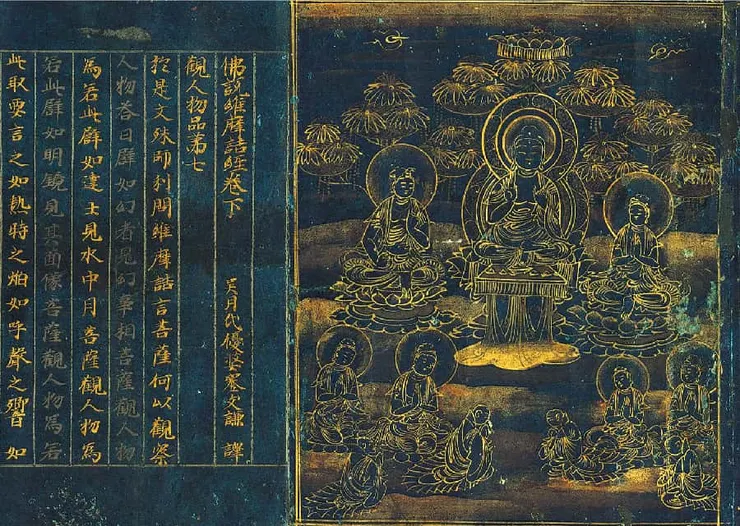 佛說維摩詰經卷下 吳月氏優婆塞支謙譯
觀人物品第七
於是文殊師利問維摩詰言菩薩何以觀察
人物答曰譬如幻者見幻事相菩薩觀人物
為若此譬如達士見水中月菩薩觀人物為
若此譬如明鏡見其面像菩薩觀人物為若
此取要言之如熱時之焰如呼聲之響如